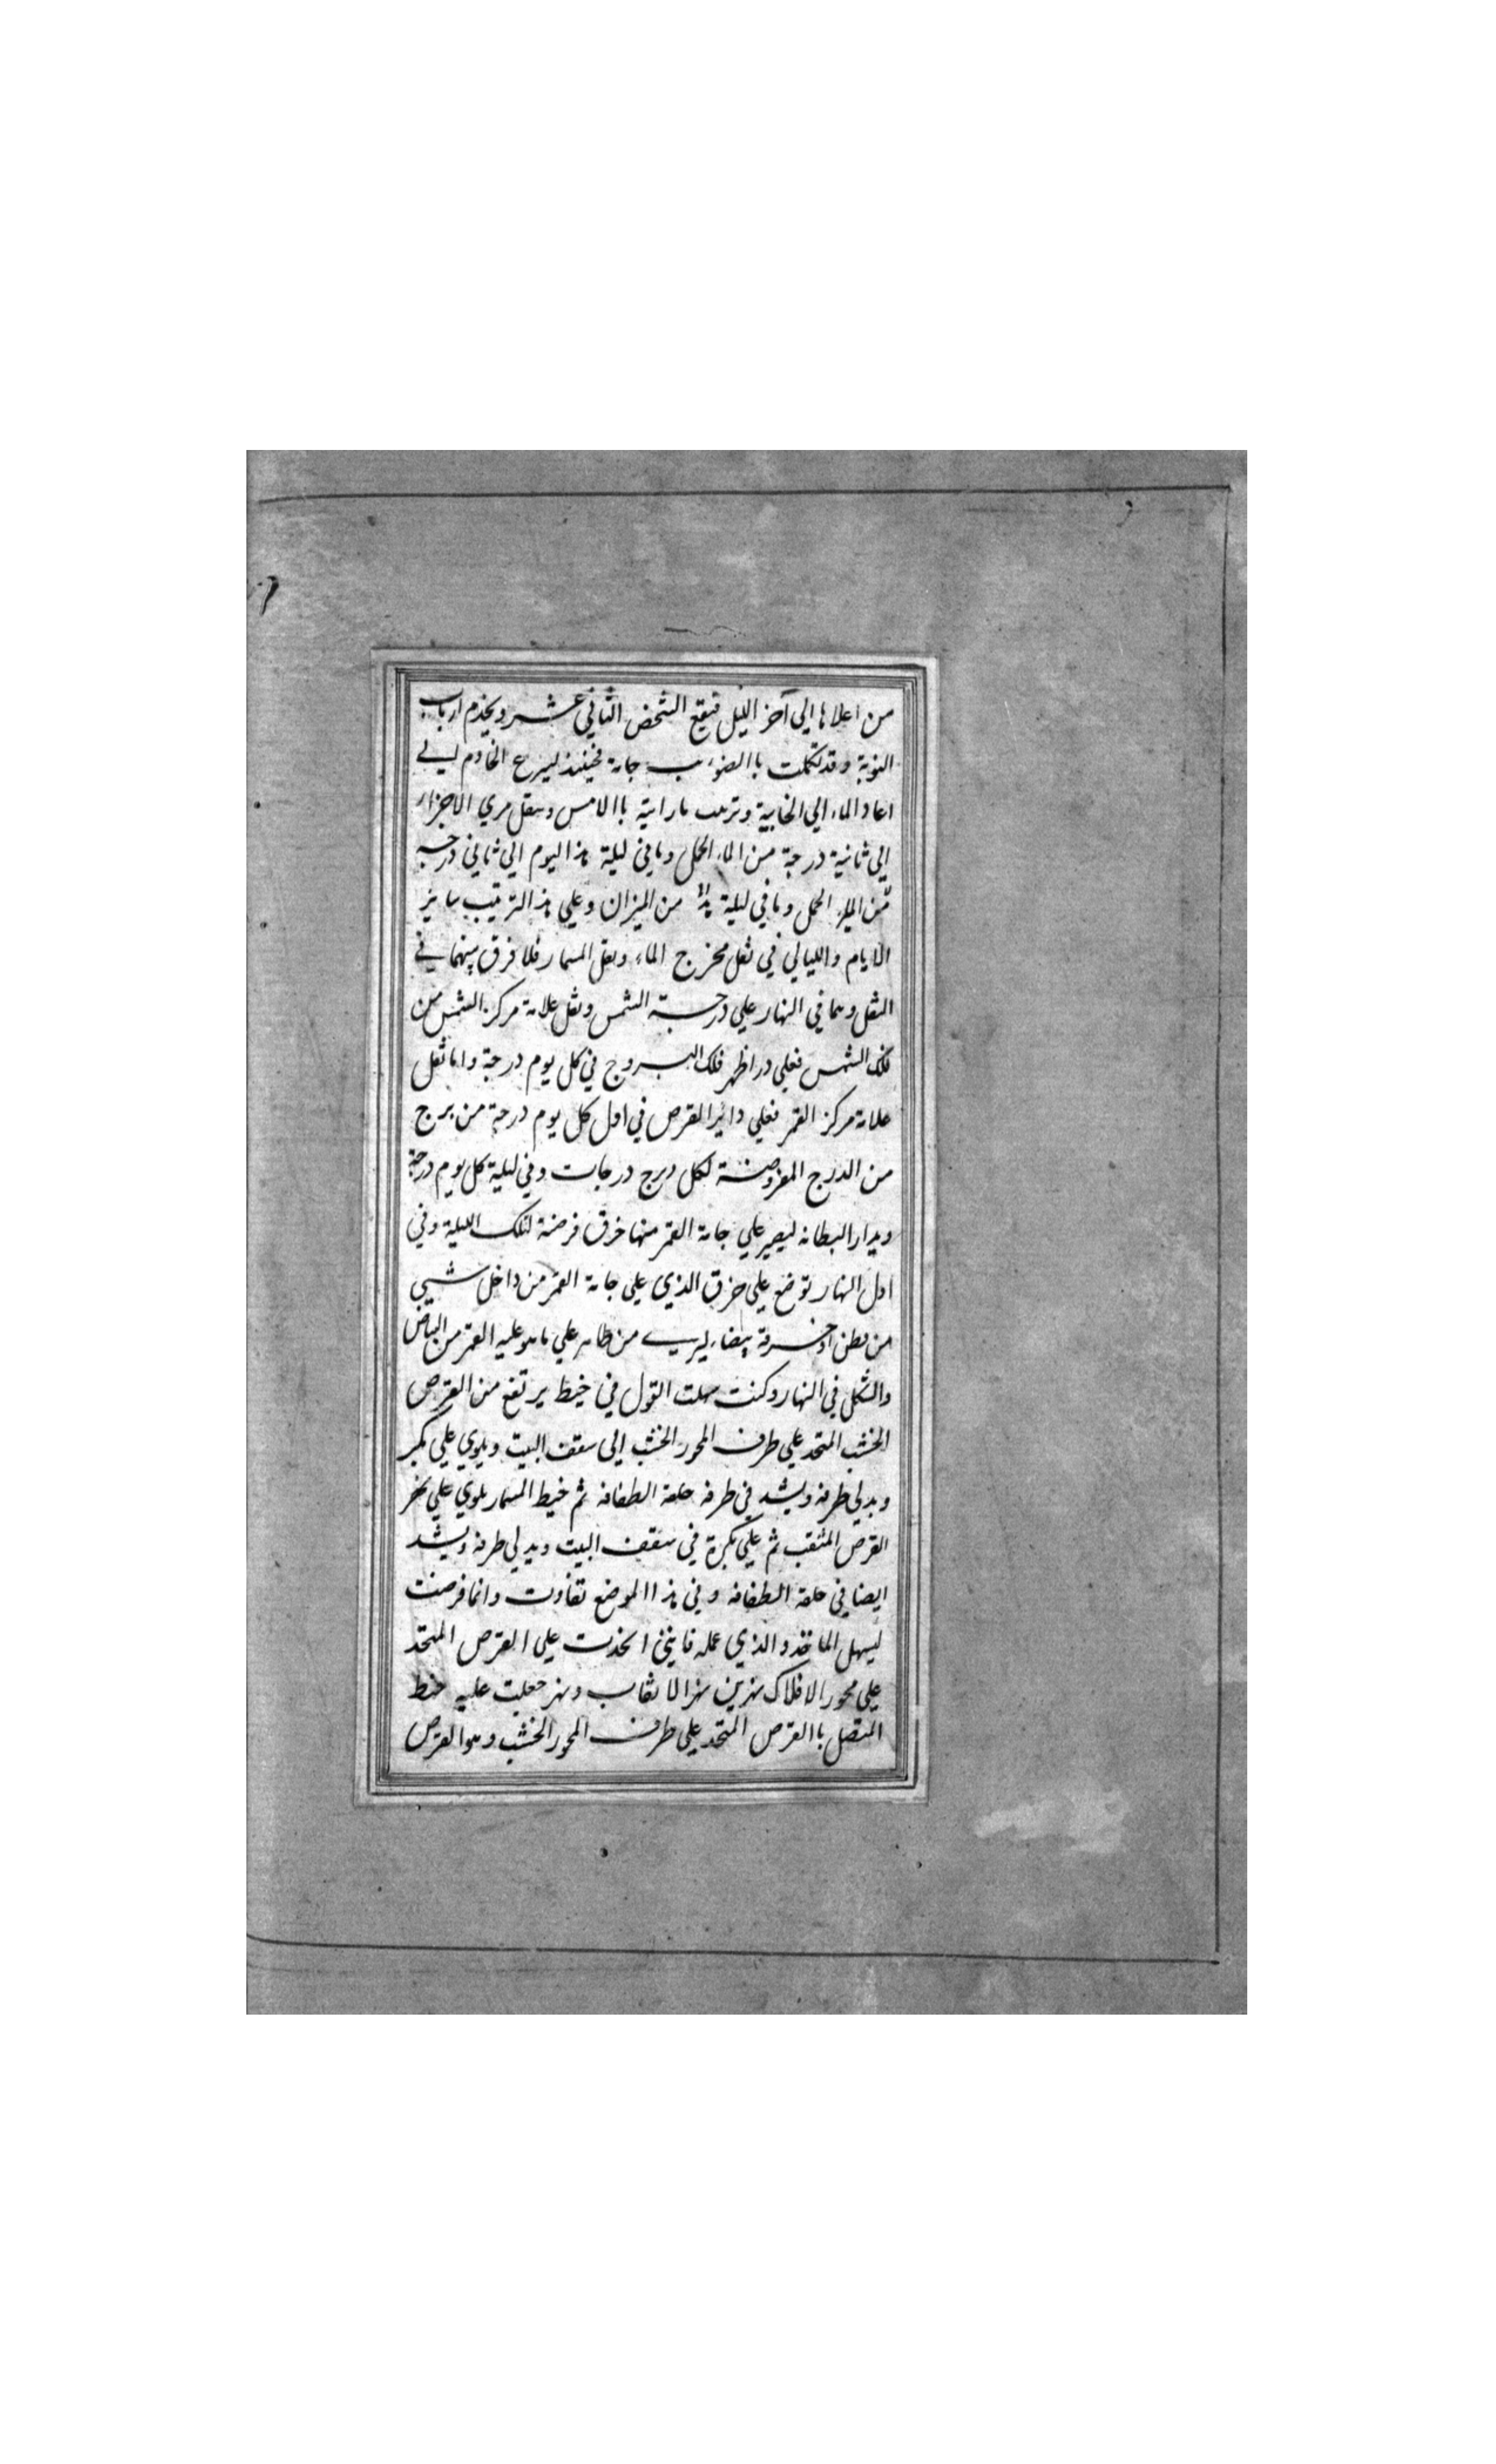 من اعلاها الي آخر الليل فيقع الشخص الثاني عشر ويخدم ارباب
النوبة وقد تكملت باالضوء جامة فحينئذ ليسرع الخادم لي
اعاد الماء الي الخابية وترتب ما رايته باالامس وينقل مري الاجزاء
الي ثانية درجة من الماء الحمل وما في ليلة هذا اليوم الي ثاني درجه
من الماء الحمل وما في ليلة هذا من الميزان وعلي هذا الترتيب ساير
الايام والليالي في نقل مخرج الماء ونقل المسمار فلا فرق بينهما في
النقل وهما في النهار علي درجة الشمس ونقل علامة مركز الشمس من
فلك الشمس فعلي در اظهر فلك البروج في كل يوم درجة واما نقل
علامة مركز القمر فعلي داير القرص في اول كل يوم درجة من برج
من الدرج المفروضة لكل درج درجات وفي ليلة كل يوم درجة
ويدار البطانه ليصير علي جامة القمر منها خرق فرضة لتلك الليلة وفي
اول النهار توضع علي خرق الذي علي جامة القمر من داخل شيي
من قطن او خرقة بيضاء ليري من ظاهر علي ما هو عليه القمر من البياض
والشكل في النهار وكنت سهلت القول في خيط يرتفع من القرص
الخشب المتحد علي طرف المحور الخشب الي سقف البيت ويلوي علي بكير
ويدلي طرفه ويشد في طرفه حلقة الطفافه ثم خيط المسمار يلوي علي نهر
القرص المثقب ثم علي بكرة في سقف البيت ويدلي طرفه ويشد
ايضا في حلقة الطفافه وفي هذا الموضع تفاوت وانما فرضت
ليسهل الماخذ والذي عمله فانني اتخذت علي القرص المتحد
علي محور الافلاك نهرين نهر الاثقاب ونهر جعلت عليه خيط
المتصل باالقرص المتحد علي طرف المحور الخشب وهو القرص